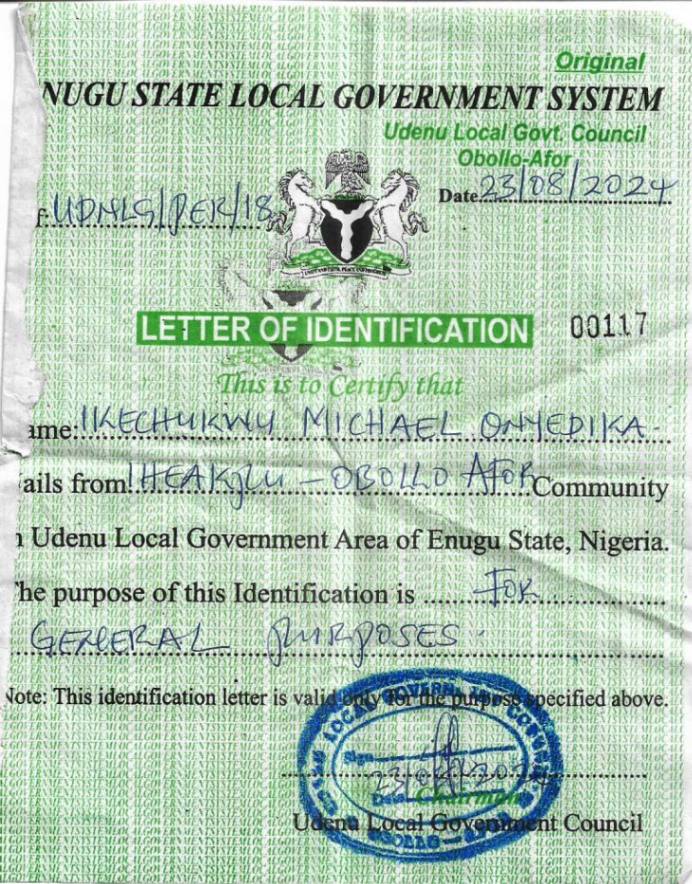 Original
NUGU STATE LOCAL GOVERNMENT SYSTEM
Udenu Local Govt. Council
Obollo-Afor
f: UDNLG/PER/18 Date 23/08/2024
LETTER OF IDENTIFICATION 00117
This is to Certify that
ame: IKECHUKWU MICHAEL ONYEDIKA
ails from IHEAKPU - OBOLLO AFOR Community
n Udenu Local Government Area of Enugu State, Nigeria.
The purpose of this Identification is FOR
GENERAL PURPOSES.
Note: This identification letter is valid only for the purpose specified above.
Sign
Date
Chairman
Udenu Local Government Council